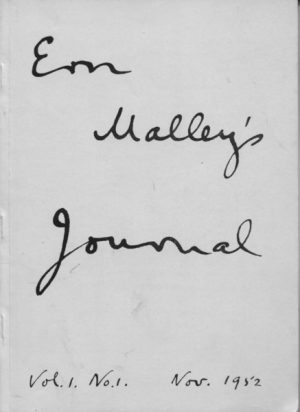 Ern
Malley's
Journal
Vol.1. No.1. Nov. 1952